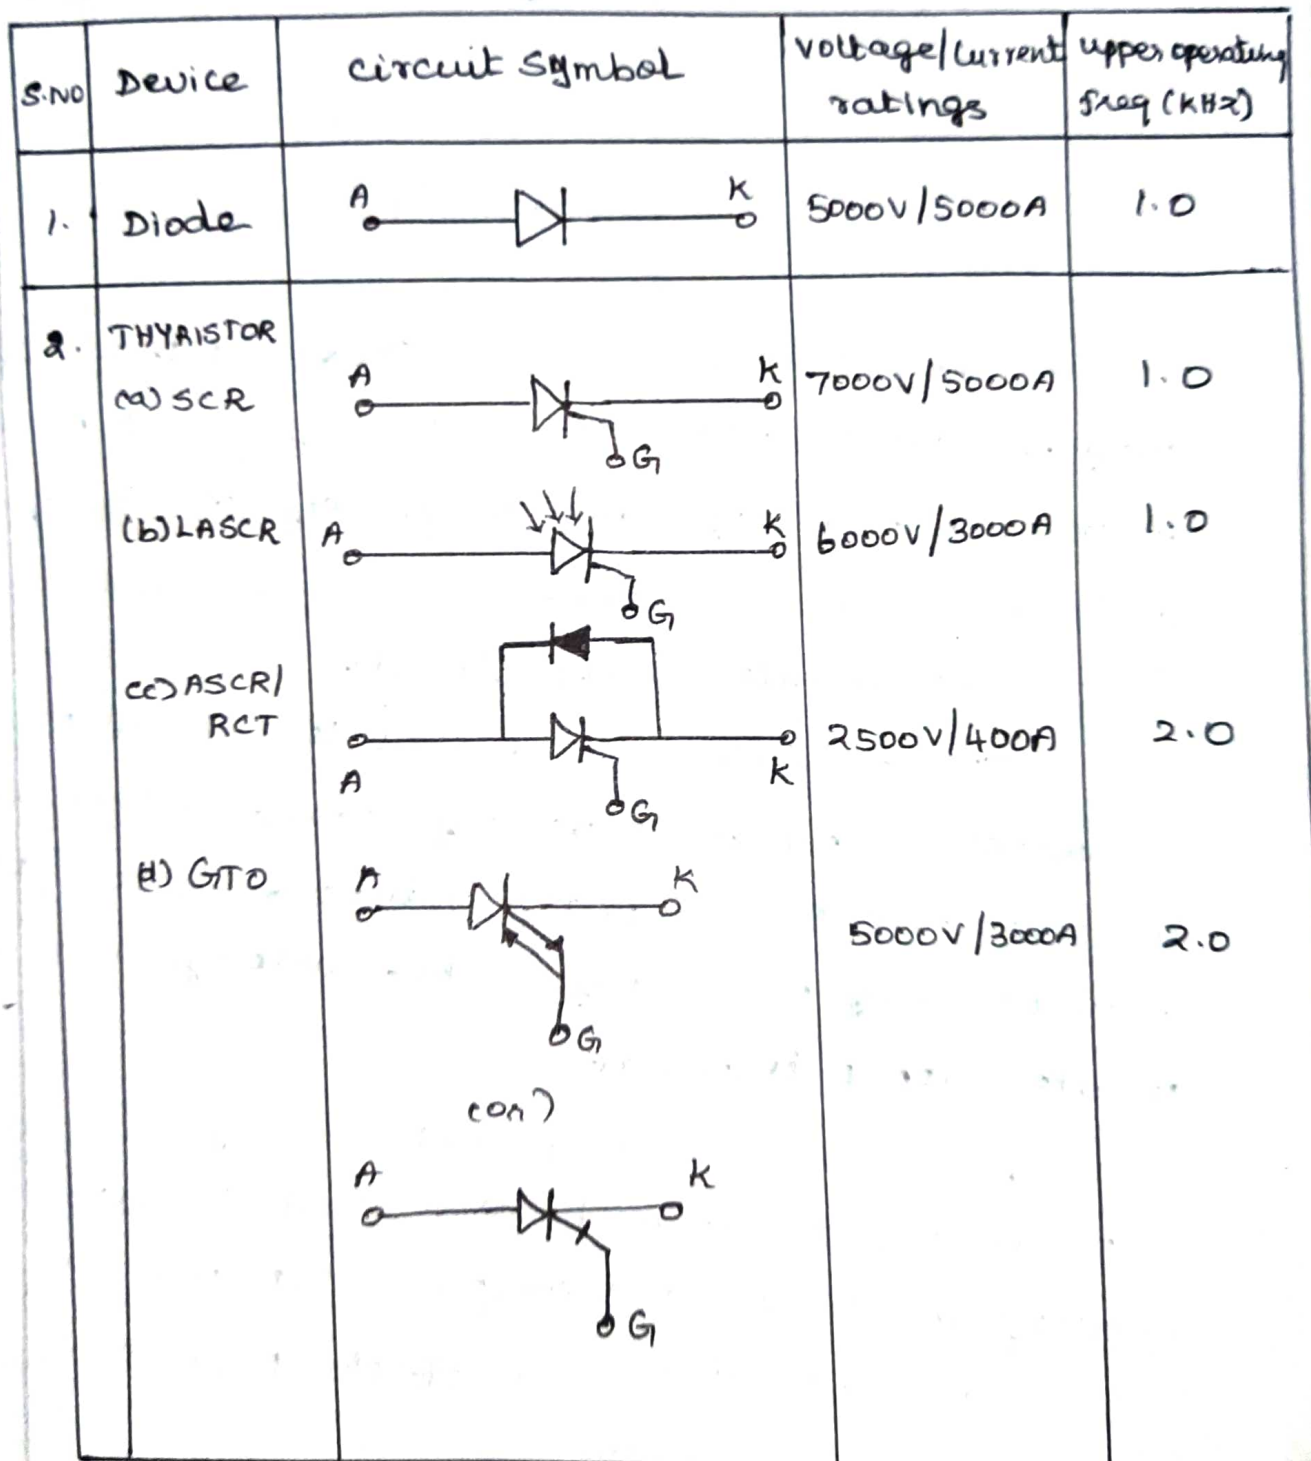 S.NO Device circuit symbol voltage/current ratings upper operating freq (KHz)
1. Diode A K 5000V/5000A 1.0
2. THYRISTOR
(a) SCR A K G 7000V/5000A 1.0
(b) LASCR A K G 6000V/3000A 1.0
(c) ASCR/
RCT A K G 2500V/400A 2.0
(d) GTO A K G 5000V/3000A 2.0
(or)
A K
G